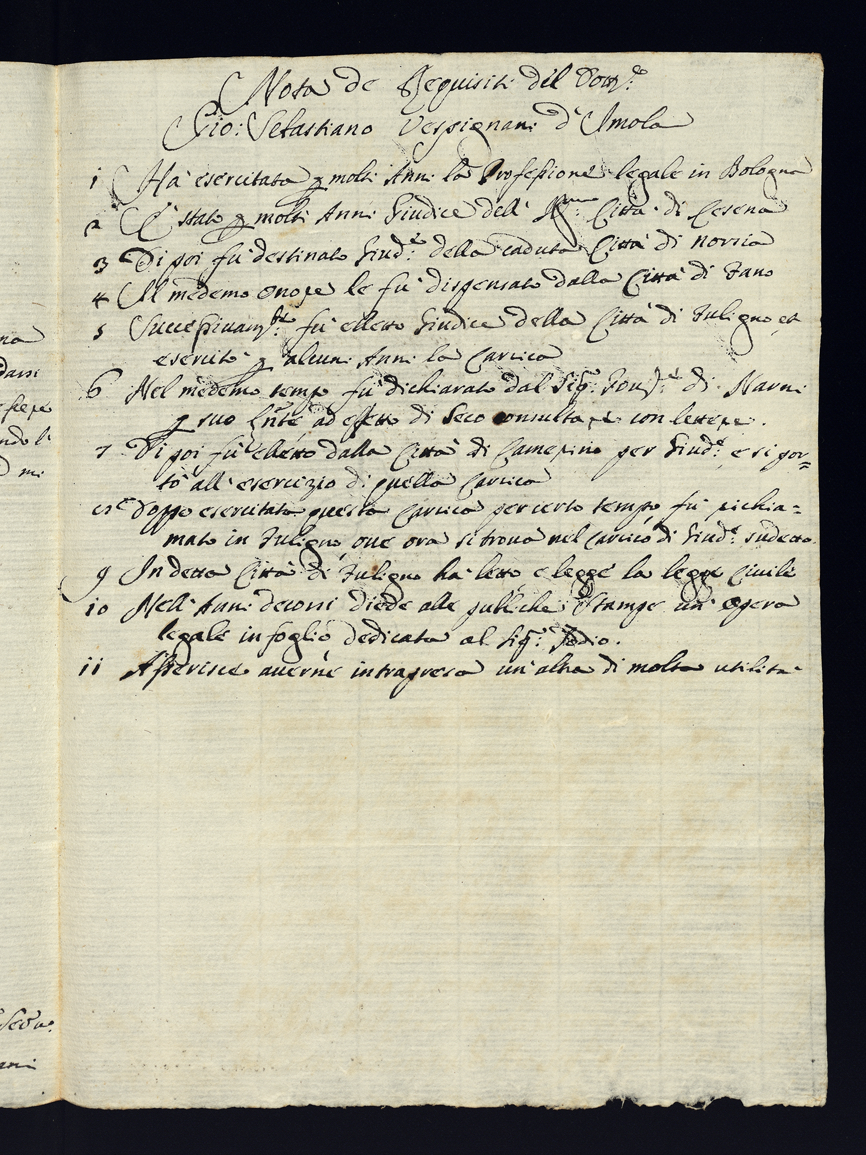 Nota de Requisiti del Dott.e
Gio: Sebastiano Vespignani d'Imola
1 Ha esercitata p molti Anni la Professione legale in Bologna
2 È stato p molti Anni Giudice dell' Città di Cesena
3 Di poi fù destinato Giud.e della caduta Città di Norcia
4 Il medemo onore le fù dispensato dalla Città di Fano
5 Successivam.te fù eletto Giudice della Città di Fuligno et
esercitò p alcuni Anni la Carica
6 Nel medemo tempo fù dichiarato dal Sig. di Narni
p suo ad effetto di Seco consultare con lettere.
7 Di poi fù eletto dalla Città di Camerino per Giud.e e si por=
tò all'esercizio di quella Carica
8 Doppo esercitata questa Carica per certo tempo fù richia=
mato in Fuligno, ove ora si trova nel Carico di Giud.e sudetto.
9 In detta Città di Fuligno ha letto e legge la legge Civile
10 Nell'Anni decorsi diede alle publiche Stampe un'Opera
legale in foglio dedicata al Sig.
11 Asserisce averne intrapresa un'altra di molta utilità
na
ndo l'
mi